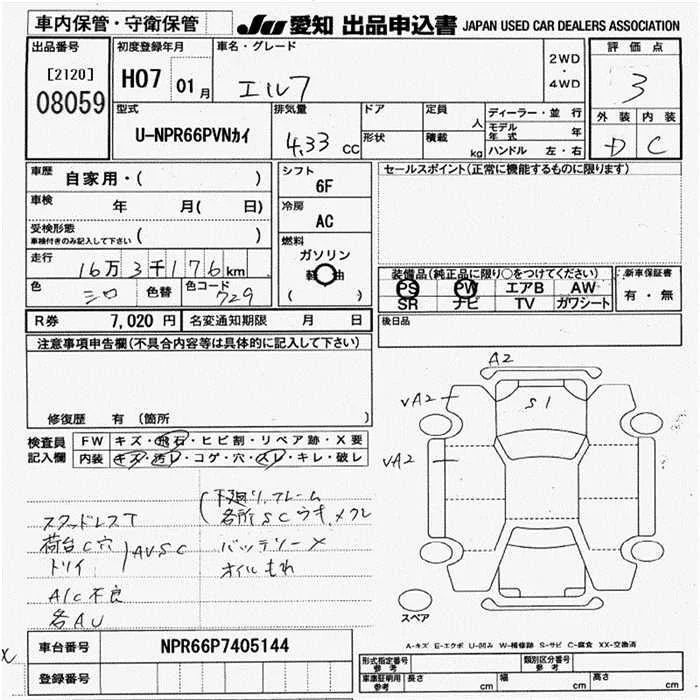 車内保管・守衛保管
JU 愛知 出品申込書 JAPAN USED CAR DEALERS ASSOCIATION
出品番号
[2120]
08059
初度登録年月
H07 01 月
車名・グレード
エルフ
2WD
・
4WD
評価点
3
外装 内装
D C
型式
U-NPR66PVNカイ
排気量
4.33 cc
ドア
形状
定員
人
積載
kg
ディーラー・並 行
モデル年式 年
ハンドル 左・右
車歴
自家用・( )
車検
年 月( 日)
受検形態
車検付きのみ記入して下さい ( )
走行
16万3千176km
色
シロ
色替
色コード
729
シフト
6F
冷房
AC
燃料
ガソリン
軽油
( )
セールスポイント(正常に機能するものに限ります)
装備品(純正品に限り○をつけてください)
PS PW エアB AW
SR ナビ TV ガワシート
新車保証書
有・無
後日品
R券 7,020 円
名変通知期限 月 日
注意事項申告欄(不具合内容等は具体的に記入して下さい)
修復歴 有 (箇所 )
検査員
記入欄
FW キズ・飛石・ヒビ割・リペア跡・X要
内装 キズ・汚レ・コゲ・穴・スレ・キレ・破レ
スタッドレスT
荷台C穴
トリイ
AUSC
A/C不良
各AU
下廻り.フレーム
各所SCウキ.メクレ
バッテリー×
オイルもれ
A2
VA2
S1
VA2
スペア
A-キズ E-エクボ U-凹み W-補修跡 S-サビ C-腐食 XX-交換済
X
車台番号
NPR66P7405144
登録番号
形式指定番号
参考
類別区分番号
参考
車庫証明用
参考
長さ cm
幅 cm
高さ cm